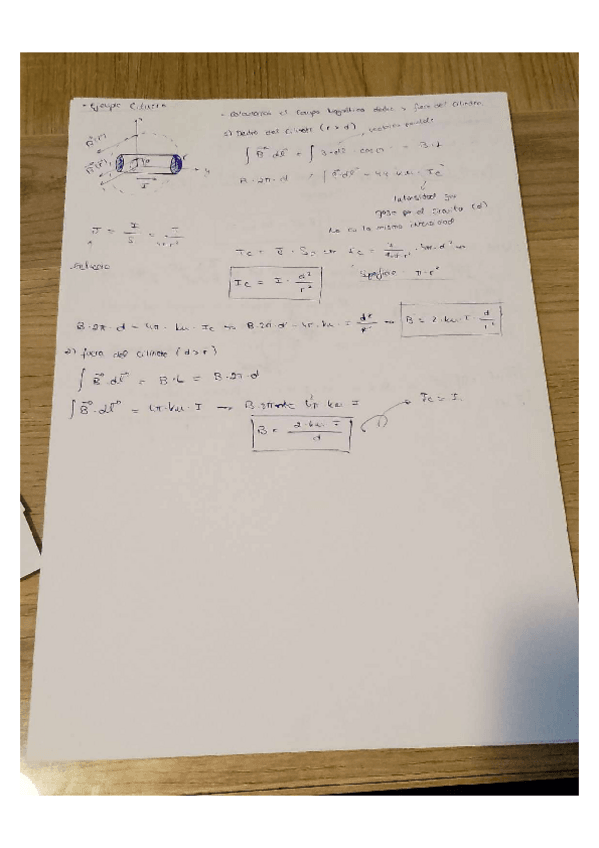 - Ejemplo Cilindro
- Calcularemos el campo magnético dentro y fuera del cilindro
1) Dentro del cilindro (r > d)
∫ B · dl = ∫ B · dl · cos 0° = B · L
B · 2π · d ∫ B · dl = 4π · km · Ic
Intensidad que
pasa por el circuito (d)
No es la misma intensidad
J = I/S = I/π·r²
Superficie π · r²
Ic = I · d²/r²
B · 2π · d = 4π · km · Ic → B · 2π · d = 4π · km · I d²/r² → B = 2 · km · I · d/r²
2) fuera del cilindro (d > r)
∫ B · dl = B · L = B · 2π · d
∫ B · dl = 4π · km · I → B · 2π · d = 4π · km · I
Ic = I
B = 2 · km · I / d